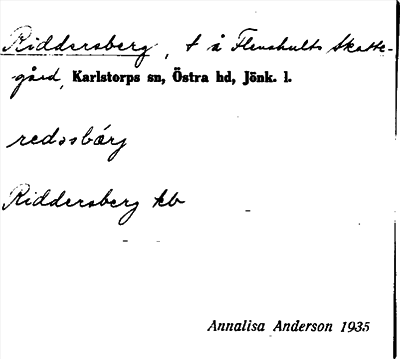 Riddersberg, t å Flenshults Skatte-
gård, Karlstorps sn, Östra hd, Jönk. l.
redəsbárj
Riddersberg kb
Annalisa Anderson 1935